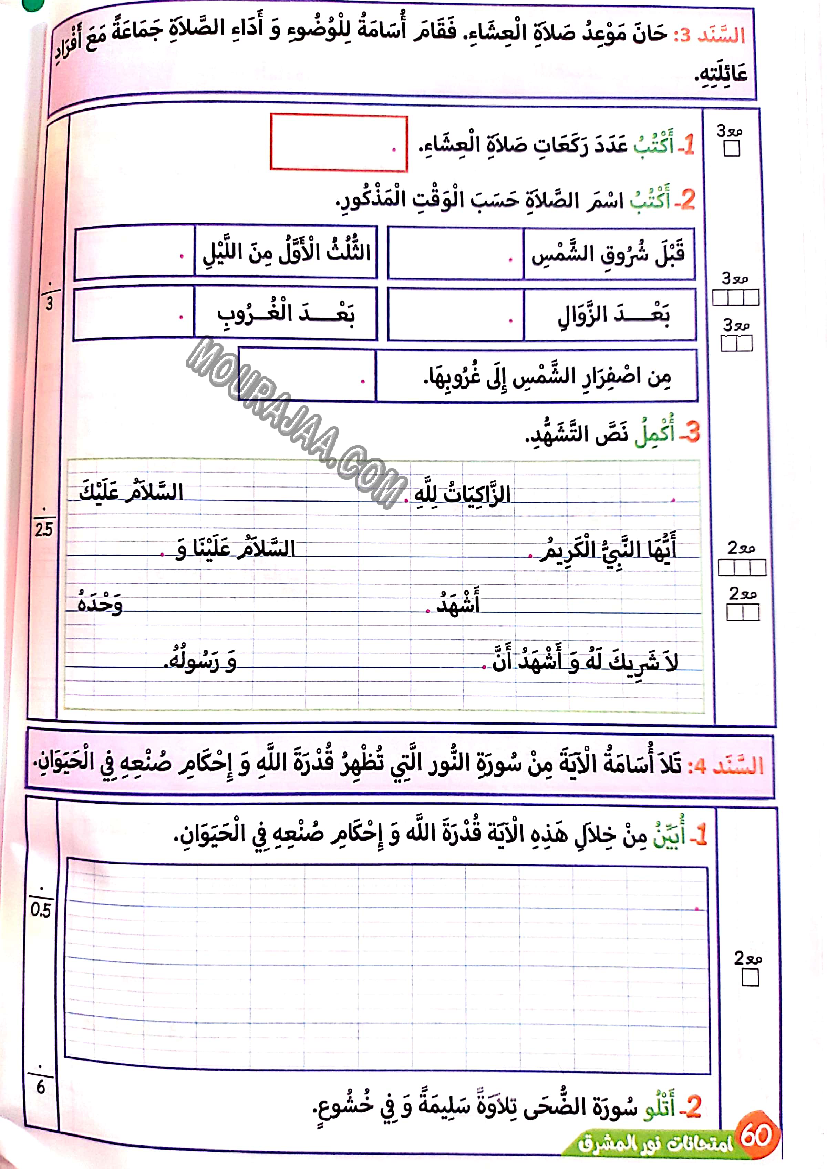 السَّنَد 3: حَانَ مَوْعِدُ صَلاَةِ الْعِشَاءِ. فَقَامَ أُسَامَةُ لِلْوُضُوءِ وَ أَدَاءِ الصَّلاَةِ جَمَاعَةً مَعَ أَفْرَادِ
عَائِلَتِهِ.
مع3
1- أَكْتُبُ عَدَدَ رَكَعَاتِ صَلاَةِ الْعِشَاءِ.
2- أَكْتُبُ اسْمَ الصَّلاَةِ حَسَبَ الْوَقْتِ الْمَذْكُورِ.
قَبْلَ شُرُوقِ الشَّمْسِ . الثُّلُثُ الْأَوَّلُ مِنَ اللَّيْلِ .
مع3
3
بَعْـــدَ الزَّوَالِ . بَعْـــدَ الْغُـــرُوبِ .
مع3
مِن اصْفِرَارِ الشَّمْسِ إِلَى غُرُوبِهَا. .
MOURAJAA.COM
3- أُكْمِلُ نَصَّ التَّشَهُّدِ.
. الزَّاكِيَاتُ لِلَّهِ . السَّلاَمُ عَلَيْكَ
2.5
مع2
أَيُّهَا النَّبِيُّ الْكَرِيمُ . السَّلاَمُ عَلَيْنَا وَ .
مع2
أَشْهَدُ . وَحْدَهُ
لاَ شَرِيكَ لَهُ وَ أَشْهَدُ أَنَّ . وَ رَسُولُهُ.
السَّنَد 4: تَلاَ أُسَامَةُ الْآيَةَ مِنْ سُورَةِ النُّور الَّتِي تُظْهِرُ قُدْرَةَ اللَّهِ وَ إِحْكَامِ صُنْعِهِ فِي الْحَيَوَانِ.
1- أُبَيِّنُ مِنْ خِلاَلِ هَذِهِ الْآيَة قُدْرَةَ اللَّه وَ إِحْكَامِ صُنْعِهِ فِي الْحَيَوَانِ.
0.5
مع2
6
2- أَتْلُو سُورَة الضُّحَى تِلاَوَةً سَلِيمَةً وَ فِي خُشُوعٍ.
60 امتحانات نور المشرق